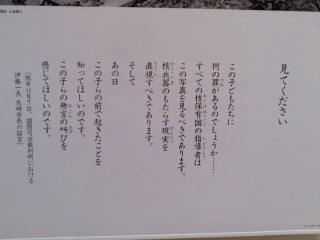 見てください
この子どもたちに
何の罪があるのでしょうか……
すべての核保有国の指導者は
この写真を見るべきであります。
核兵器のもたらす現実を
直視すべきであります。
そして
あの日
この子らの前で起きたことを
知ってほしいのです。
この子らの無言の叫びを
感じてほしいのです。
(95年11月7日、国際司法裁判所における
伊藤一長 長崎市長の証言)